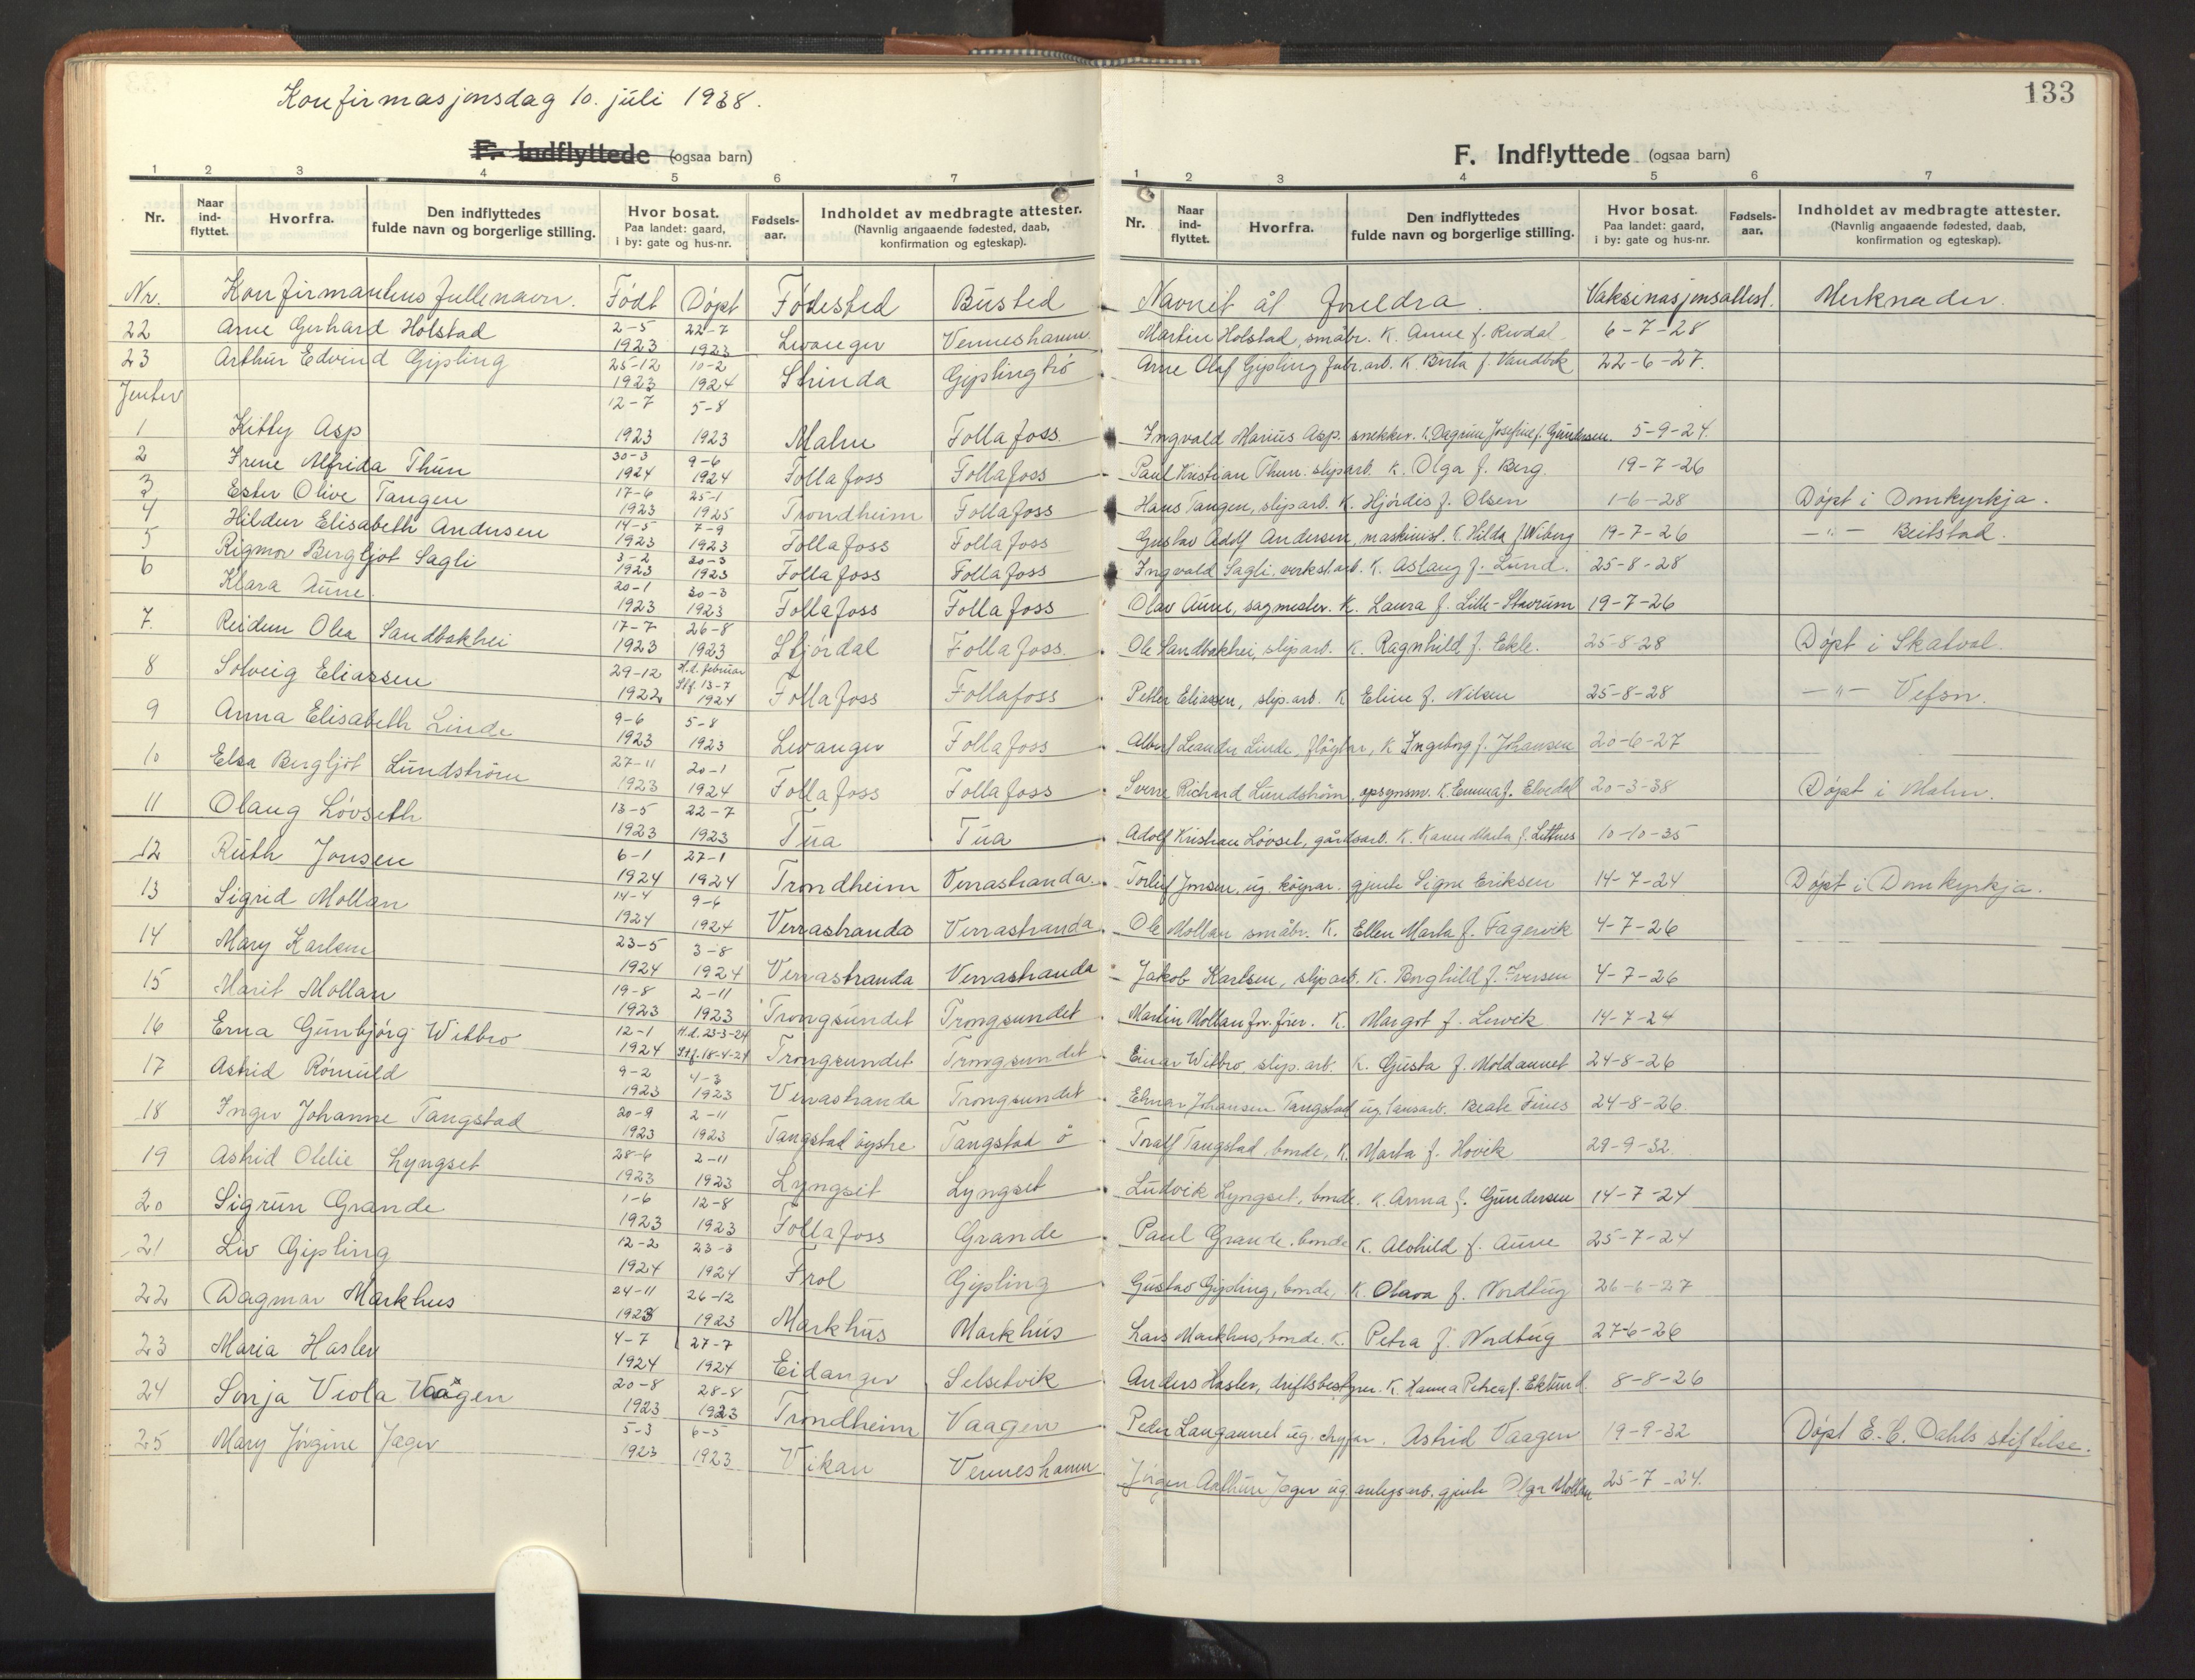 Konfirmasjonsdag 10. juli 1938.
133
F. Indflyttede (ogsaa barn)
1 2 3 4 5 6 7
Nr. Naar ind-flyttet. Hvorfra. Den indflyttedes fulde navn og borgerlige stilling. Hvor bosat. Paa landet: gaard, i by: gate og hus-nr. Fødsels-aar. Indholdet av medbragte attester. (Navnlig angaaende fødested, daab, konfirmation og egteskap).
F. Indflyttede (ogsaa barn)
1 2 3 4 5 6 7
Nr. Naar ind-flyttet. Hvorfra. Den indflyttedes fulde navn og borgerlige stilling. Hvor bosat. Paa landet: gaard, i by: gate og hus-nr. Fødsels-aar. Indholdet av medbragte attester. (Navnlig angaaende fødested, daab, konfirmation og egteskap).
Nr. Konfirmantens fulle navn. Født Døpt Fødested Busted Navnet åt foreldra. Vaksinasjonsattest. Merknader.
22 Arne Gerhard Holstad 2-5 1923 22-7 1923 Levanger Venneshamn Martin Holstad, småbr. K. Anne f. Rovdal 6-7-28
23 Arthur Edvind Gipling 25-12 1923 10-2 1924 Strinda Giplingtrø Arne Olaf Gipling fabr.arb. K. Berta f. Vandbak 22-6-27.
Jenter
1 Kitty Asp 12-7 1923 5-8 1923 Malm Follafoss Ingvald Marius Asp. snekker. K. Dagrun Josefine f. Gundersen. 5-9-24.
2 Irene Alfrida Thun 30-3 1924 9-6 1924 Follafoss Follafoss Paul Kristian Thun. sliparb. K. Olga f. Berg. 19-7-26
3 Ester Olive Tangen 17-6 1923 25-1 1925 Trondheim Follafoss Hans Tangen, sliparb. K. Hjördis f. Olsen 1-6-28 Döpt i Domkyrkja.
4 Hildur Elisabeth Andersen 14-5 1923 7-9 1923 Follafoss Follafoss Gustav Adolf Andersen, maskinist. K. Hilda f. Wiberg 19-7-26 —"— Beitstad.
5 Rigmor Bergljot Sagli 3-2 1923 20-3 1923 Follafoss Follafoss Ingvald Sagli, verkstarb. K. Aslaug f. Lund. 25-8-28
6 Klara Aune. 20-1 1923 30-3 1923 Follafoss Follafoss Olav Aune, sagmester. K. Laura f. Lille-Stavrum 19-7-26
7. Reidun Olea Sandbakhei 17-7 1923 26-8 1923 Stjørdal Follafoss. Ole Sandbakhei, sliparb. K. Ragnhild f. Ekle. 25-8-28 Döpt i Skatval.
8 Solveig Eliassen 29-12 1922 H.d. februar Stf. 13-7 1924 Follafoss Follafoss Petter Eliassen, slip.arb. K Eline f. Nilsen 25-8-28 —"— Vefsn.
9 Anna Elisabeth Linde 9-6 1923 5-8 1923 Levanger Follafoss Leander Linde, K Ingeborg f. Johansen 20-6-27
10 Elsa Bergljot Lundström 27-11 1923 20-1 1924 Follafoss Follafoss Sverre Richard Lundström, opsynsm. K. Emma f. Elvedal 20-3-38 Döpt i Malm.
11 Olaug Lövseth 13-5 1923 22-7 1923 Tua Tua Adolf Kristian Lövset, gårdsarb. K. Karen Marta f. 10-10-35
12 Ruth Jonsen 6-1 1924 27-1 1924 Trondheim Verrastranda. Torleif Jonsen, ug. gjente Signe Eriksen 14-7-24 Döpt i Domkyrkja.
13 Sigrid Mollan 14-4 1924 9-6 1924 Verrastranda Verrastranda Ole Mollan småbr. K. Ellen Marta f. Fagervik 4-7-26
14 Mary Karlsen 23-5 1924 3-8 1924 Verrastranda Verrastranda Jakob Karlsen, sliparb. K. Borghild f. Iversen 4-7-26
15 Marit Mollan 19-8 1923 2-11 1923 Trongsundet Trongsundet Martin Mollan K. Margot f. Lervik 14-7-24
16 Erna Gunbjörg Witbro 12-1 1924 H.d. 23-3-24 Stf. 18-4-24 Trongsundet Trongsundet Einar Witbro, slip.arb. K. Gusta f. Moldaunet 24-8-26
17 Astrid Römuld 9-2 1923 4-3 1923 Verrastranda Trongsundet Johansen Tangstad ug. Beate Fines 24-8-26.
18 Inger Johanne Tangstad 20-9 1923 2-11 1923 Tangstad öystre Tangstad ö Toralf Tangstad bonde, K. Marta f. Hovik 29-9-32.
19 Astrid Otelie Lyngset 28-6 1923 2-11 1923 Lyngset Lyngset Ludvik Lyngset, bonde. K. Anna f. Gundersen 14-7-24
20 Sigrun Grande 1-6 1923 12-8 1923 Follafoss Grande Paul Grande. bonde K. Alvhild f. Aune 25-7-24
21 Liv Gipling 12-2 1924 23-3 1924 Frol Gipling Gustav Gipling, bonde, K. Olava f. Nordtug 26-6-27
22 Dagmar Markhus 24-11 1923 26-12 1923 Markhus Markhus Lars Markhus, bonde. K. Petra f. Nordtug 27-6-26
23 Maria Hasler 4-7 1924 27-7 1924 Eidanger Selsetvik Anders Hasler, driftsbestyrer. K. Hanna Petrea f. Eklund. 8-8-26
24 Sonja Viola Vaagen 20-8 1923 28-8 1923 Trondheim Vaagen Peder Langaunet ug. Astrid Vaagen 19-9-32 Döpt E. C. Dahls stiftelse.
25 Mary Jörgine Jager 5-3 1923 6-5 1923 Vikan Venneshamn Jörgen Arthur Jager ug. anlegsarb. gjente Olga Mollan 25-7-24.